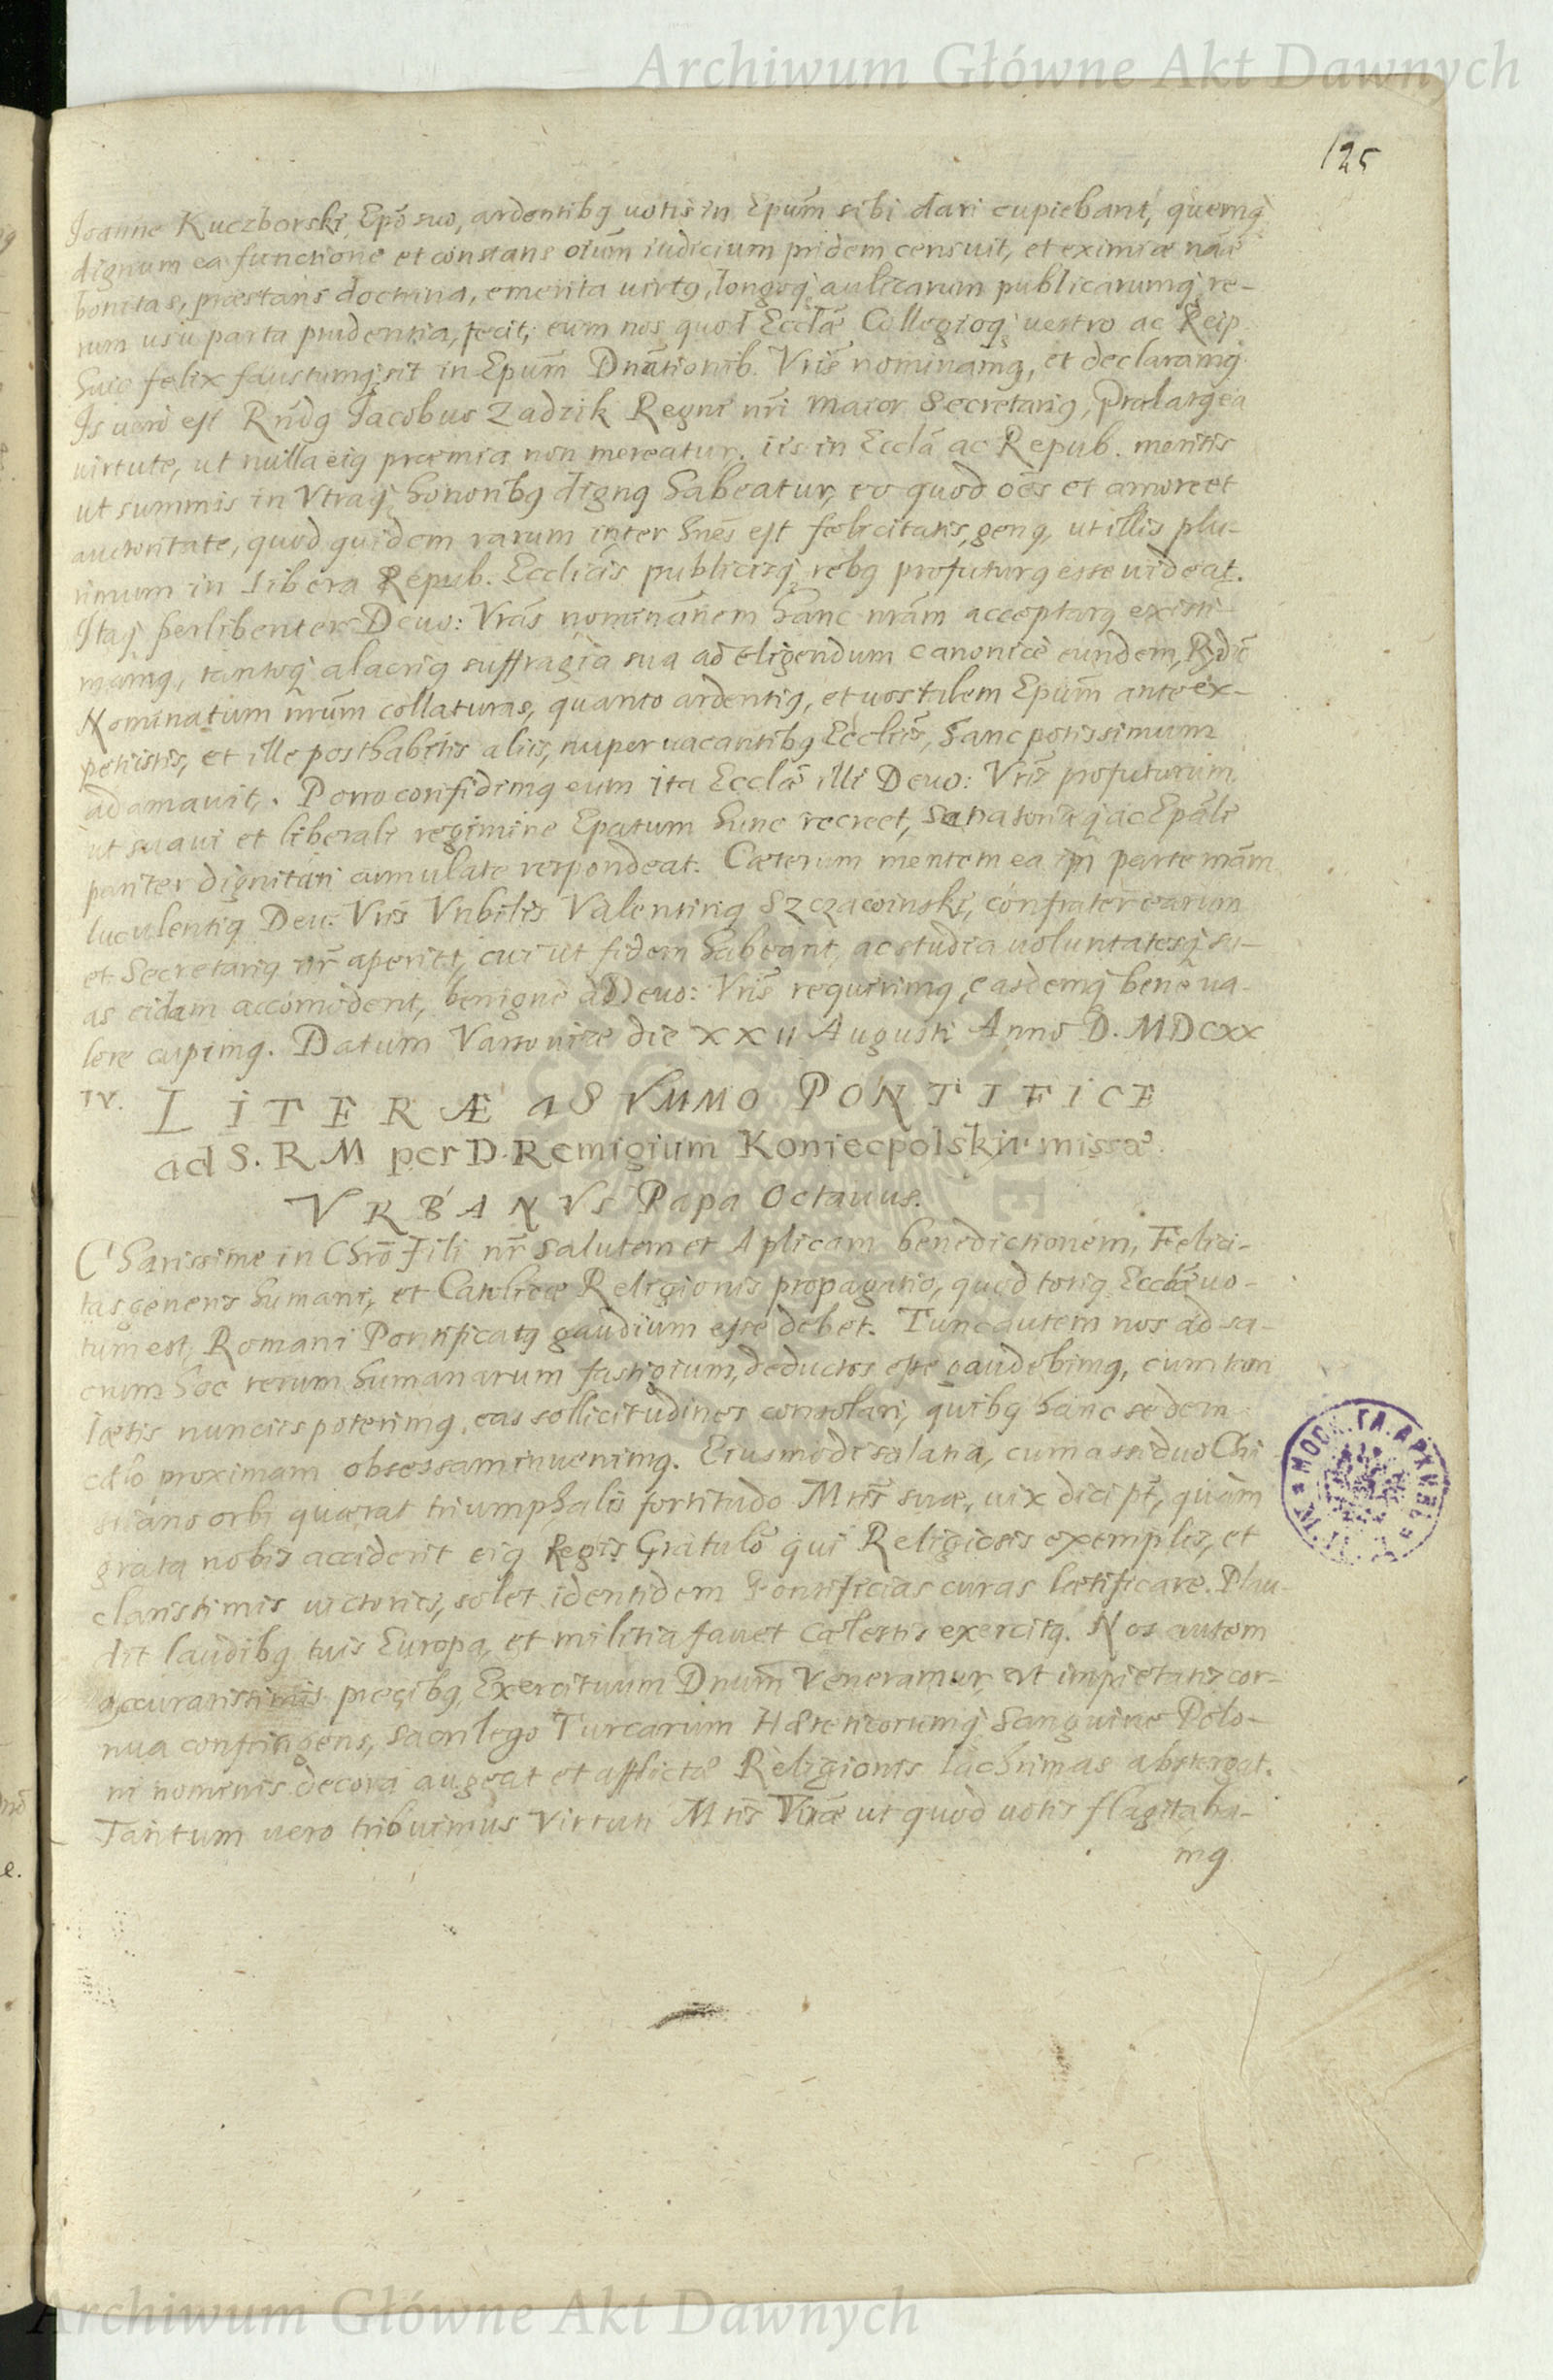 Archiwum Główne Akt Dawnych
125
Joanne Kuczborski Epō suo, ardentibq uotis in Epūm sibi dari cupiebant, quemq
dignum ea functione et constans oīum iudicium pridem censuit, et eximiæ nāe
bonitas, præstans doctrina, emerita uirtq, longoq aulicarum publicarumq re-
rum usu parta prudentia, fecit, eum nos quod Ecclæ Collegioq uestro ac Reip.
huic felix faustumq sit in Epūm Dnātionib. Vrīs nominamq, et declaramq.
Is uero est Rndq Jacobus Zadzik Regni nrī Maior Secretariq, Prælatq ea
uirtute, ut nulla eiq præmia non mereatur. iis in Ecclā ac Repub. meritis
ut summis in Vtraq honoribq dignq habeatur, eo quod oēs et amore et
auctoritate, quod quidem rarum inter hnēs est fœlicitatis genq, ut illis plu-
rimum in libera Repub. Ecclicīs publicisq rebq profuturq esse uideat.
Itaq perlibenter Deuo: Vrās nominānem hanc nrām accepturq existi-
mamq, tantoq alacriq suffragia sua ad eligendum canonice eundem, Rdū
Nominatum nrūm collaturas, quanto ardentiq, et uos talem Epūm ante ex-
petistis, et ille posthabitis aliis, nuper uacantibq Eccliīs, hanc potissimum
adamauit. Porro confidimq eum ita Ecclæ illi Deuo: Vrīs profuturum
ut suaui et liberali regimine Epatum hunc recreet, senatoriæq ac Epāli
pariter dignitati cumulate respondeat. Cæterum mentem ea in parte nrām
luculentiq Deu: Vrīs Vnbilis Valentinq Szczawinski, confrater earum
et Secretariq nr̄ aperiet, cui ut fidem habeant, ac studia uoluntatesq su-
as eidam accōmodent, benigne a Deuo: Vrīs requirimq, easdemq bene ua-
lere cupimq. Datum Varsouiæ die XXII Augusti Anno D. MDCXX
IV.
LITERÆ a SVMMO PONTIFICE
ad S. R M per D. Remigium Koniecpolskiu missæ.
VRBANVS Papa Octauus.
Charissime in Chrō Fili nr̄ salutem et Aplicam benedictionem, Felici-
tas generis humani, et Catolicæ Religionis propagatio, quod totiq Ecclæ uo-
tum est, Romani Pontificatq gaudium esse debet. Tunc autem nos ad sa-
crum hoc rerum humanarum fastigium, deductos esse gaudebimq, cum tam
lætis nunciis poterimq, eas sollicitudines consolari, quibq hanc sedem
cælo proximam obsessam inuenimq. Eiusmodi solatia, cum assiduo Chri
stiano orbi quærat triumphalis fortitudo Mtis suæ, uix dici pt, quam
grata nobis acciderit eiq Regis Gratulō qui Religiosis exemplis, et
clarissimis uictoriis, solet identidem Pontificias curas lætificare. Plau-
dit laudibq tuis Europa, et militia fauet cælestis exercitq. Nos autem
accuratissimis precibq, Exercituum Dnūm Veneramur, ut impietatis cor-
nua confringens, sacrilego Turcarum Hæreticorumq sanguine Polo-
ni nominis decora augeat et afflictæ Religionis lachrimas abstergat.
Tantum uero tribuimus Virtuti Mtis Vræ ut quod uotis flagitaba-
mq
Archiwum Główne Akt Dawnych